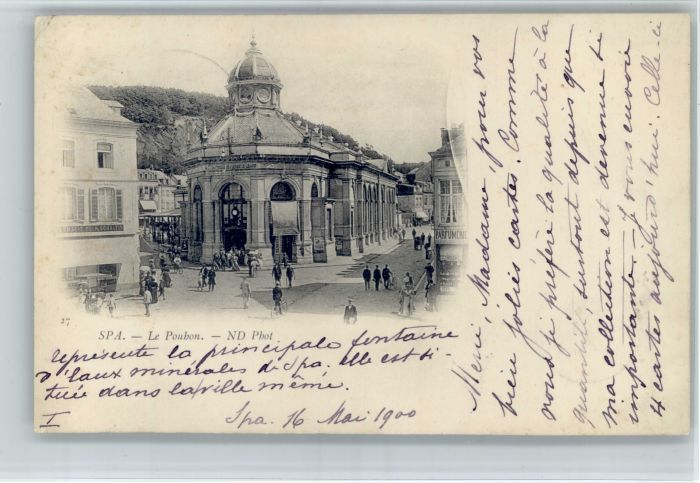 Merci, Madame, pour vos
bien jolies cartes. Comme
vous je préfère la qualité à la
quantité surtout depuis que
ma collection est devenue si
importante. Je vous envoie
4 cartes aujourd'hui. Celle-ci
PARFUMERIE
27
SPA. — Le Pouhon. — ND Phot
représente la principale fontaine
d'eaux minérales de Spa, elle est si-
tuée dans la ville même.
Spa. 16 Mai 1900
I